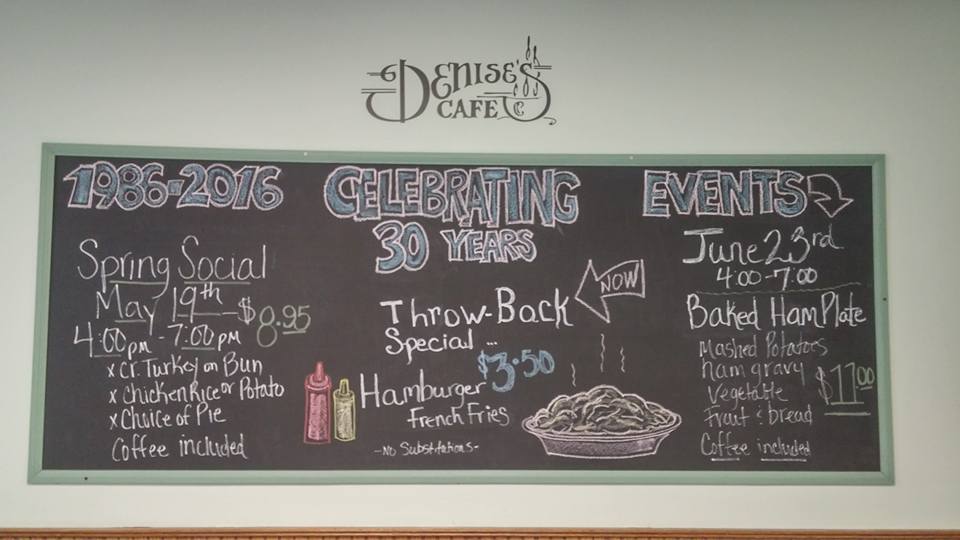 DENISE'S
CAFE
1986-2016
Spring Social
May 19th - $8.95
4:00pm - 7:00pm
x Cr. Turkey on Bun
x Chicken Rice or Potato
x Choice of Pie
Coffee included
CELEBRATING
30 YEARS
NOW
Throw-Back
Special...
$3.50
Hamburger
French Fries
-No Substitutions-
EVENTS
June 23rd
4:00-7:00
Baked Ham Plate
Mashed Potatoes
ham gravy
Vegetable
$11.00
Fruit & bread
Coffee included